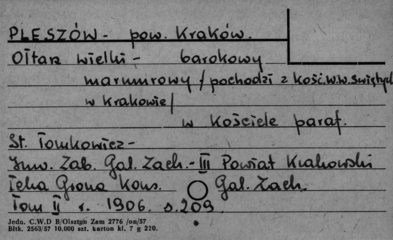 PLESZÓW - pow. Kraków.
Ołtarz wielki - barokowy
marmurowy / pochodzi z Kośc. W.W. Świętych
w Krakowie /
w Kościele paraf.
St. Tomkowicz -
Inw. Zab. Gal. Zach. - III Powiat Krakowski
Teka Grona Kons. Gal. Zach.
Tom II r. 1906. s. 209.
Jedn. C.W.D B/Olsztyn Zam 2776 /on/57
Bltk. 2563/57 10.000 szt. karton kl. 7 g 220.